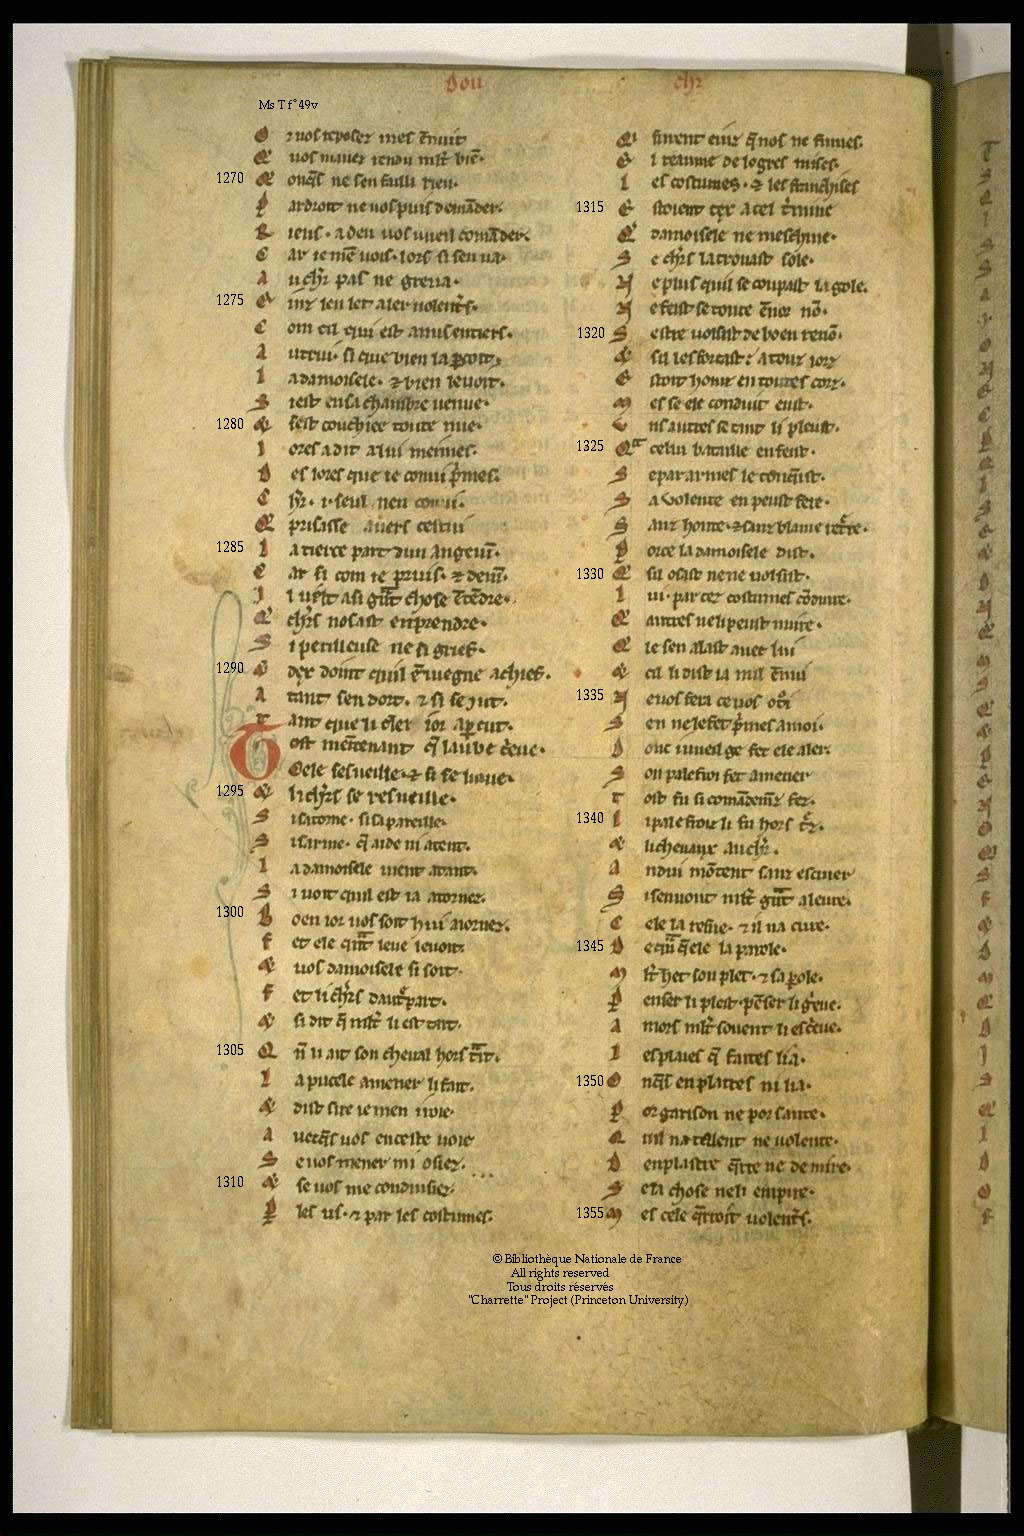 dou chr
Ms T f° 49v
E vos mauez rendu mlt bien.
1270 Et onqes ne sen failli rien.
P ar droit ne vos puis demãder.
R iens. a deu vos vueil comãder.
C ar ie mẽ vois. lors si sen va.
A u chr pas ne greva.
1275
C om cil qui est amis entiers.
A utrui. si que bien laꝑcoit.
L a damoisele. ⁊ bien le voit.
S iest en sa chambre venue.
1280 Et sest couchiee toute nue.
L ores a dit a lui meimes.
D es lores que ie conui p̃mes.
C hr. i. seul nen conui.
Q prisasse avers cestui
1285 L a tierce part dun angevin.
C ar si com ie pruis. ⁊ devin.
I l velt a si gñt chose ẽtẽdre.
Q chrs nosast enprendre.
S i perilleuse ne si grief.
1290 Et dex doint quil ẽ viegne a chief.
A tant sen dort. ⁊ si se jut.
T ant que li cler ior aparut.
T ost mẽtenant q̃ laube crieve.
Sele sesveille. ⁊ si se lieve.
1295 Et li chrs se resveille.
S i satorne. si sapareille.
S i sarme. q̃ aide ni atent.
L a damoisele vient atant.
S i voit quil est ia atornez.
1300 B oen ior vos soit hui aiornez.
F et ele qñt leve le voit.
Et vos damoisele si soit.
F et li chrs dautrepart.
Et si dit q̃ mlt li est tart.
1305 Q ñ li ait son cheval hors trait.
L a pucele amener li fait.
Et dist sire ie men iroie
A veqes vos en ceste voie
S e vos mener mi osiez.
1310 Et se vos me conduisiez.
P les us. ⁊ par les costumes.
Q furent ainz q̃ nos ne fumes.
E l reaume de logres mises.
L es costumes. ⁊ les franchises
1315 E stoient tex a cel termine
Q damoisele ne meschine.
S e chrs la trovast sole.
N e plus quil se coupast la gole.
N e feist se toute ẽnor nõ.
1320 S estre volsist de boen renõ.
Et sil lesforcast: a touz iorz
E stoit honiz en toutes corz.
M es se ele conduit eust.
U ns autres se tant li pleust.
1325 Q a celui bataille en feist.
S e par armes le conqist.
S a volente en peust fere.
S anz honte. ⁊ sanz blame retrere.
P orce la damoisele dist.
1330 Q sil osast ne ne volsist.
L ui. par cez costumes cõduire.
Q autres ne li peust nuire.
Q ie sen alast avec lui
Et cil li dist ia mil ẽnui
1335
S en ne le fet p̃mes a moi.
D onc i vueil ge fet ele aler.
S on palefroi fet amener
T ost fu si comãdemẽz fez.
1340 L i palefroiz li fu hors trez.
Et li chevaux au chr.
A ndui mõtent sanz escuier
S i sen vont mlt gñt aleure.
C ele la resne. ⁊ il na cure.
1345 D e qñ q̃ele la parole.
P enser li plest. pẽser li grieve.
A mors mlt sovent li escrieve.
L es plaies q̃ faites li a.
1350 O nqes enplastres ni lia.
P or garison ne por sante.
Q uil na talent ne volente.
D enplastre qerre ne de mire.
S eta chose ne li empire.
1355 M es cele qerroit volent̃s.
© Bibliothèque Nationale de France
All rights reserved
Tous droits réservés
"Charrette" Project (Princeton University)